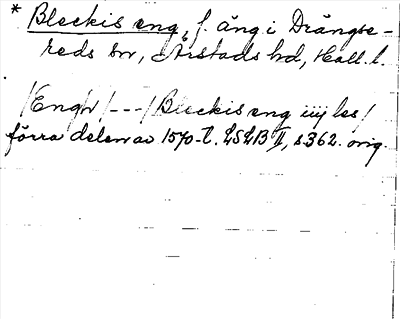 * Bleckis eng, f. äng i Drängse-
reds sn, Årstads hd, Hall. l.
/Engh/---/Bleckis eng iiij les/
förra delen av 1570-t. LSLB II, s 362. orig.